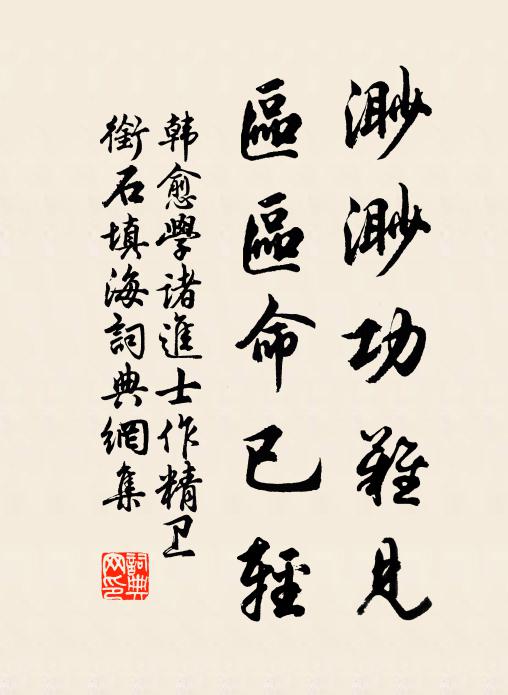 渺渺功難見
區區命已輕
韩愈學诸進士作精卫
銜石填海詞典網集
詞典网印